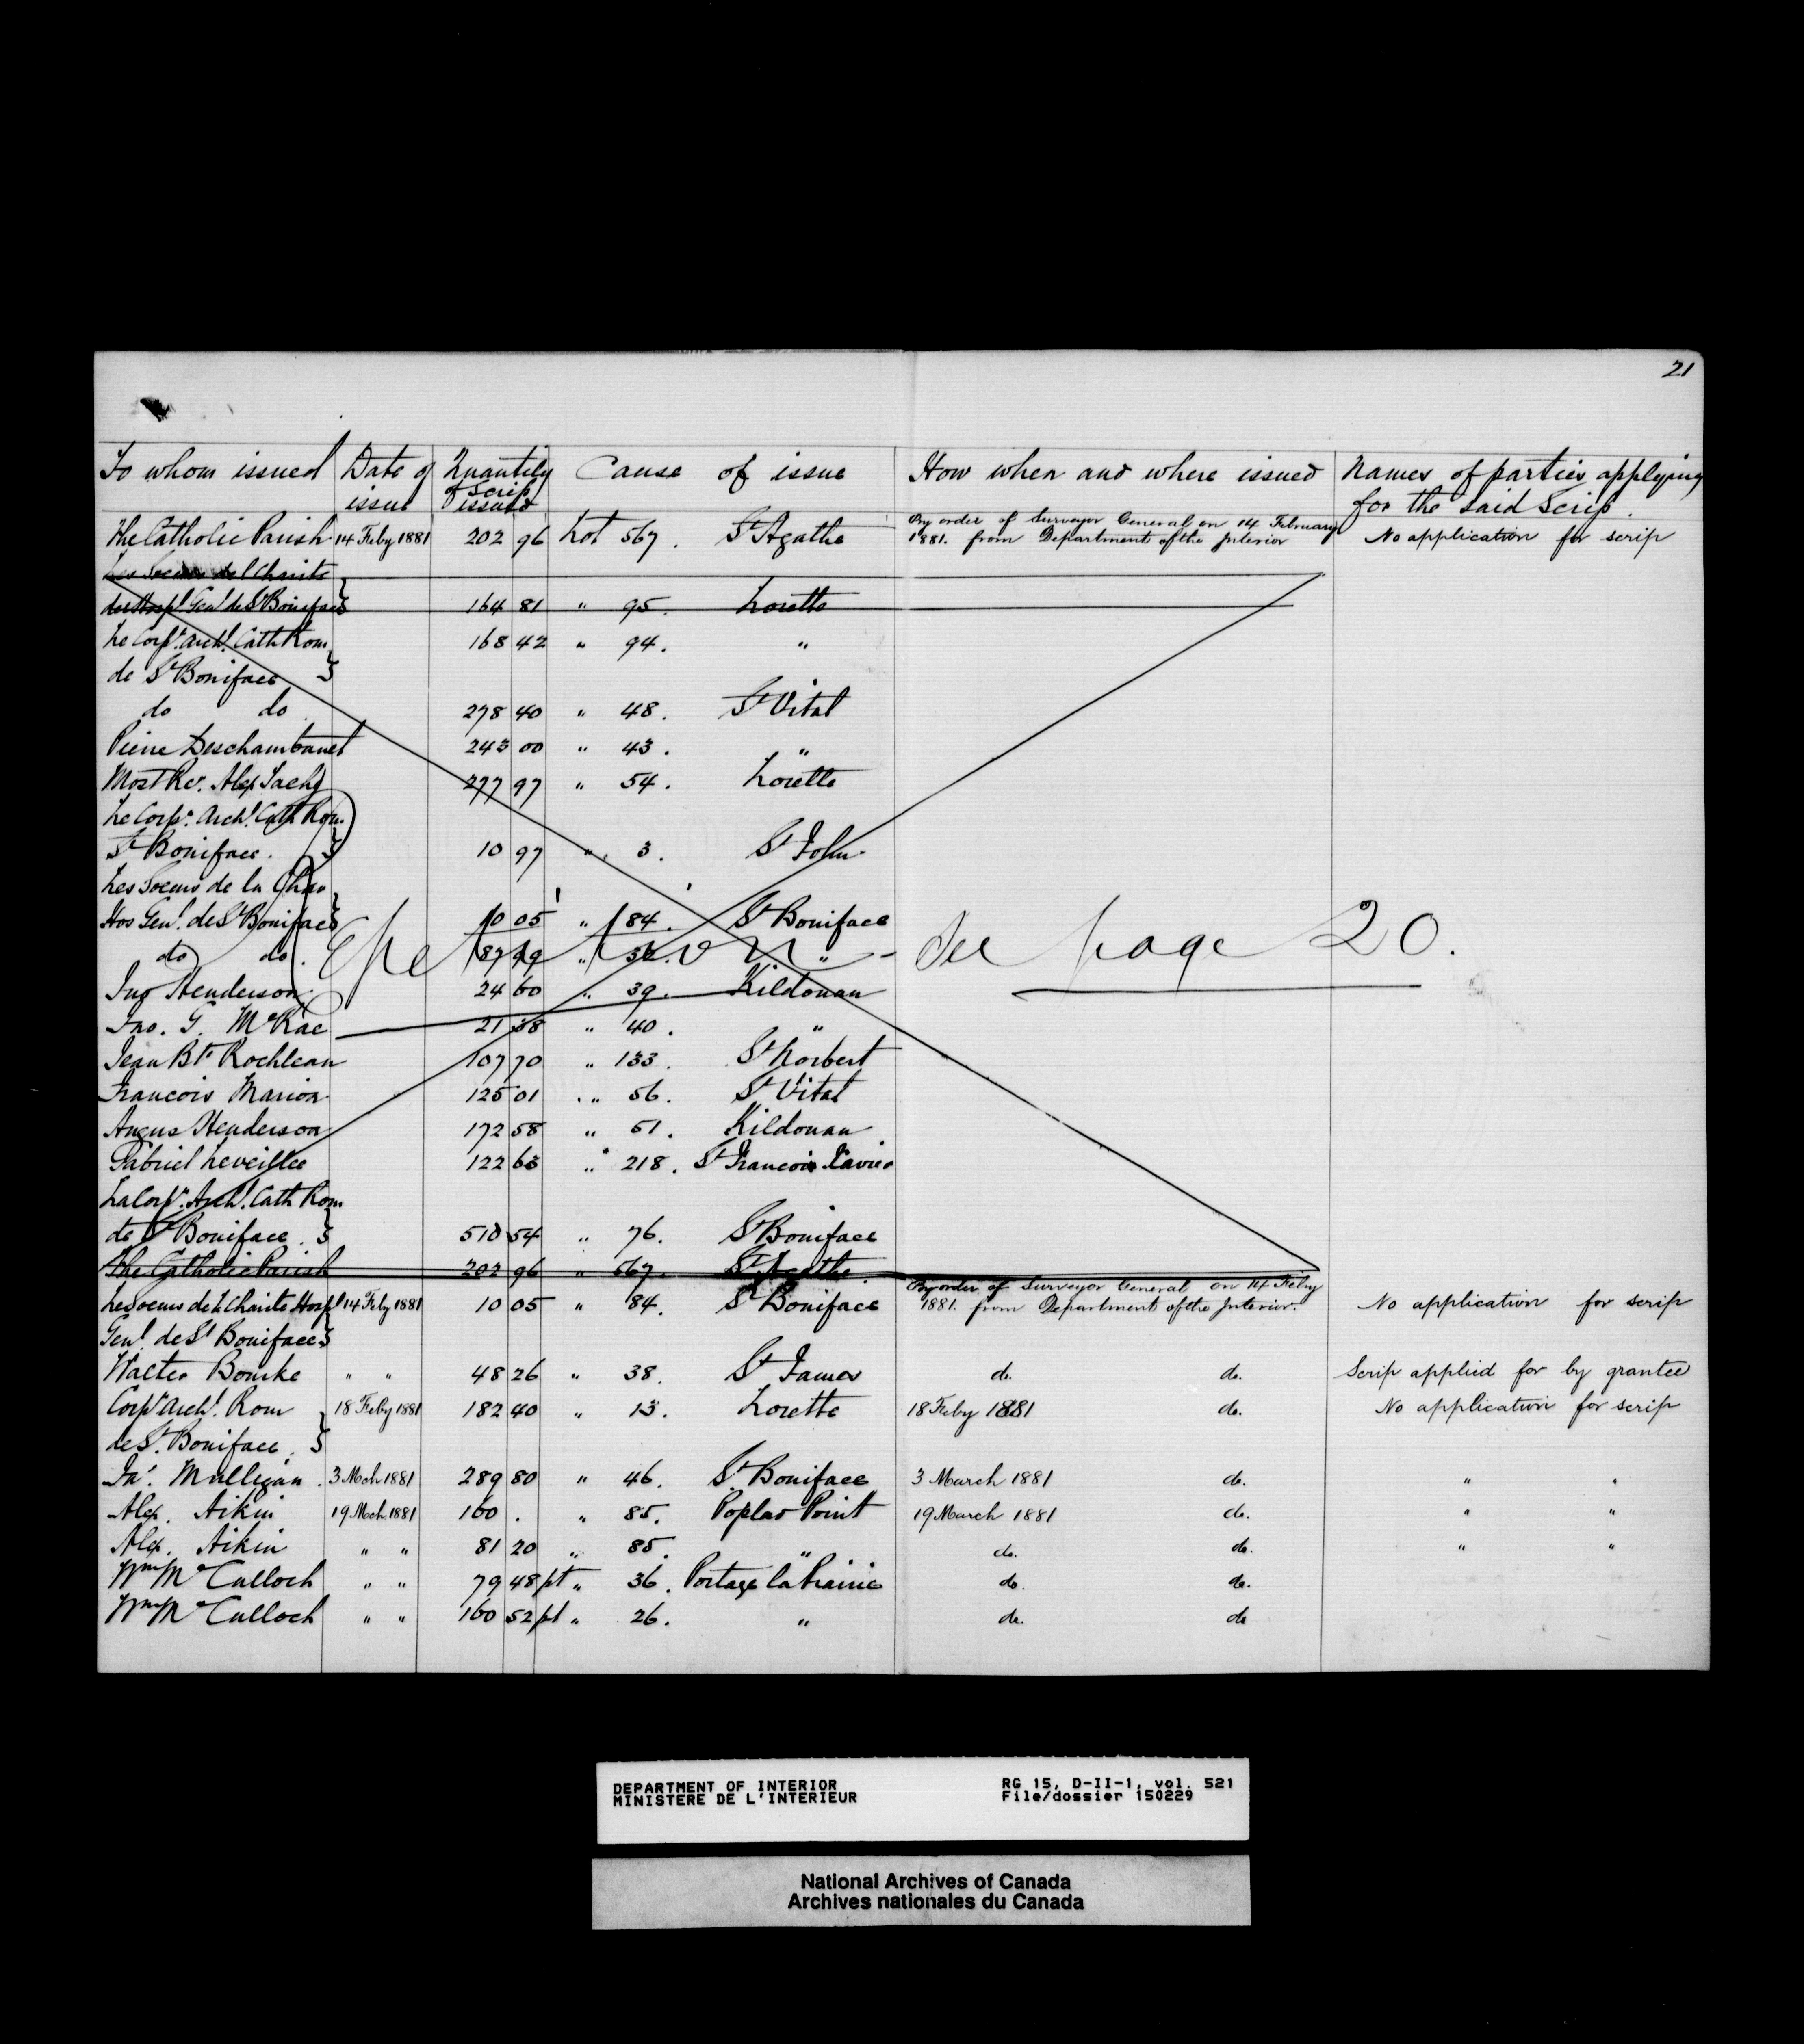 21
To whom issued Date of issue Quantity of scrip issued Cause of issue How when and where issued Names of parties applying for the said Scrip.
The Catholic Parish 14 Feby 1881 202 96 Lot 567. St Agathe By order of Surveyor General on 14 February 1881. from Department of the Interior No application for scrip
Les Soeurs de l Charite
des Hospl Genl de St Boniface 164 81 " 95. Lorette
Le Corpn. Archl. Cath Rom 168 42 " 94. "
de St Boniface
do do 278 40 " 48. St Vital
Pierre Deschambault 243 00 " 43. "
Most Rev. Alex Tache 277 97 " 54. Lorette
Le Corpn. Archl. Cath Rom.
St Boniface. 10 97 " 3. St John
Les Soeurs de la Char
Hos Genl. de St Boniface 10 05 " 84. St Boniface
do do. 87 "  "
Repetition - See page 20.
Jno Henderson 24 60 " 39. Kildonan
Jno. G. McRae 21 38 " 40. "
Jean Bte Rochleau 107 70 " 133. St Norbert
Francois Marion 125 01 " 56. St Vital
Angus Henderson 172 58 " 51. Kildonan
Gabriel Leveillee 122 63 " 218. St Francois Xavier
La Corpn. Archl. Cath Rom.
de St Boniface. 510 54 " 76. St Boniface
The Catholic Parish 202 96 " 567. St Agathe
Les Soeurs de l Charite Hospl 14 Feby 1881 10 05 " 84. St Boniface By order of Surveyor General on 14 Feby 1881. from Department of the Interior. No application for scrip
Genl. de St Boniface
Walter Bourke " " 48 26 " 38. St James do. do. Scrip applied for by grantee
Corpn Archl. Rom 18 Feby 1881 182 40 " 13. Lorette 18 Feby 1881 do. No application for scrip
de St. Boniface.
Jas. Mulligan. 3 Mch 1881 289 80 " 46. St. Boniface 3 March 1881 do. " "
Alex. Aikin 19 Mch 1881 160 . " 85. Poplar Point 19 March 1881 do. " "
Alex. Aikin " " 81 20 " 85. " do. do. " "
Wm McCulloch " " 79 48 pt " 36. Portage la Prairie do. do.
Wm McCulloch " " 160 52 pt " 26. " do. do
DEPARTMENT OF INTERIOR RG 15, D-II-1, vol. 521
MINISTERE DE L'INTERIEUR File/dossier 150229
National Archives of Canada
Archives nationales du Canada